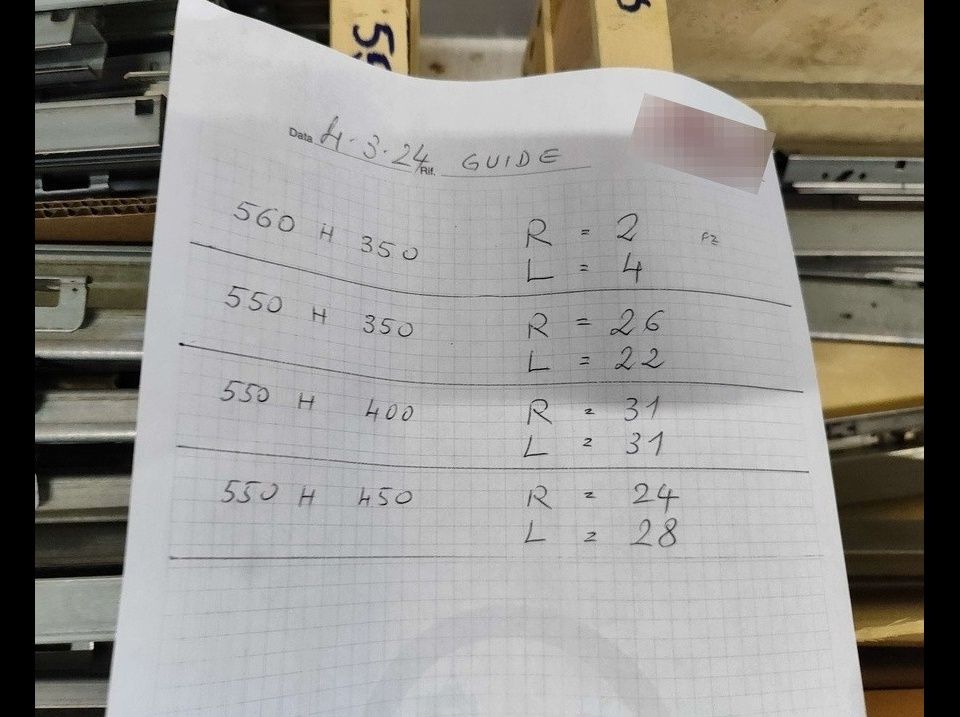 Data 4.3.24 Rif. GUIDE
560 H 350 R = 2 PZ
L = 4
550 H 350 R = 26
L = 22
550 H 400 R = 31
L = 31
550 H 450 R = 24
L = 28